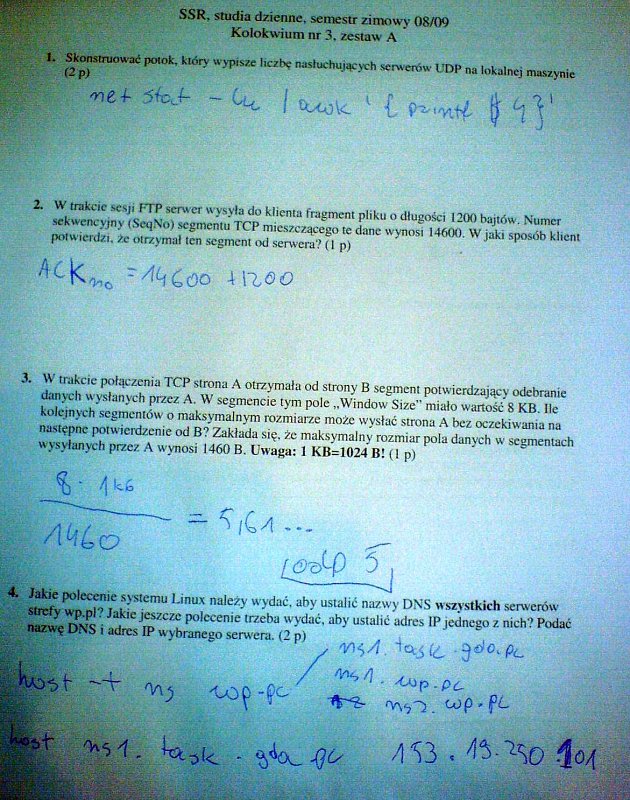 SSR, studia dzienne, semestr zimowy 08/09
Kolokwium nr 3, zestaw A
1. Skonstruować potok, który wypisze liczbę nasłuchujących serwerów UDP na lokalnej maszynie
(2 p)
net stat - lu / awk ' { printf $ 4 } '
2. W trakcie sesji FTP serwer wysyła do klienta fragment pliku o długości 1200 bajtów. Numer
sekwencyjny (SeqNo) segmentu TCP mieszczącego te dane wynosi 14600. W jaki sposób klient
potwierdzi, że otrzymał ten segment od serwera? (1 p)
ACK no = 14600 + 1200
3. W trakcie połączenia TCP strona A otrzymała od strony B segment potwierdzający odebranie
danych wysłanych przez A. W segmencie tym pole „Window Size” miało wartość 8 KB. Ile
kolejnych segmentów o maksymalnym rozmiarze może wysłać strona A bez oczekiwania na
następne potwierdzenie od B? Zakłada się, że maksymalny rozmiar pola danych w segmentach
wysyłanych przez A wynosi 1460 B. Uwaga: 1 KB=1024 B! (1 p)
8 · 1kb
1460
= 5,61...
odp 5
4. Jakie polecenie systemu Linux należy wydać, aby ustalić nazwy DNS wszystkich serwerów
strefy wp.pl? Jakie jeszcze polecenie trzeba wydać, aby ustalić adres IP jednego z nich? Podać
nazwę DNS i adres IP wybranego serwera. (2 p)
ns1. task . gda.pl
host -t ns wp.pl
ns1. wp.pl
ns2. wp.pl
host ns1. task . gda pl 153 . 19. 250 . 101